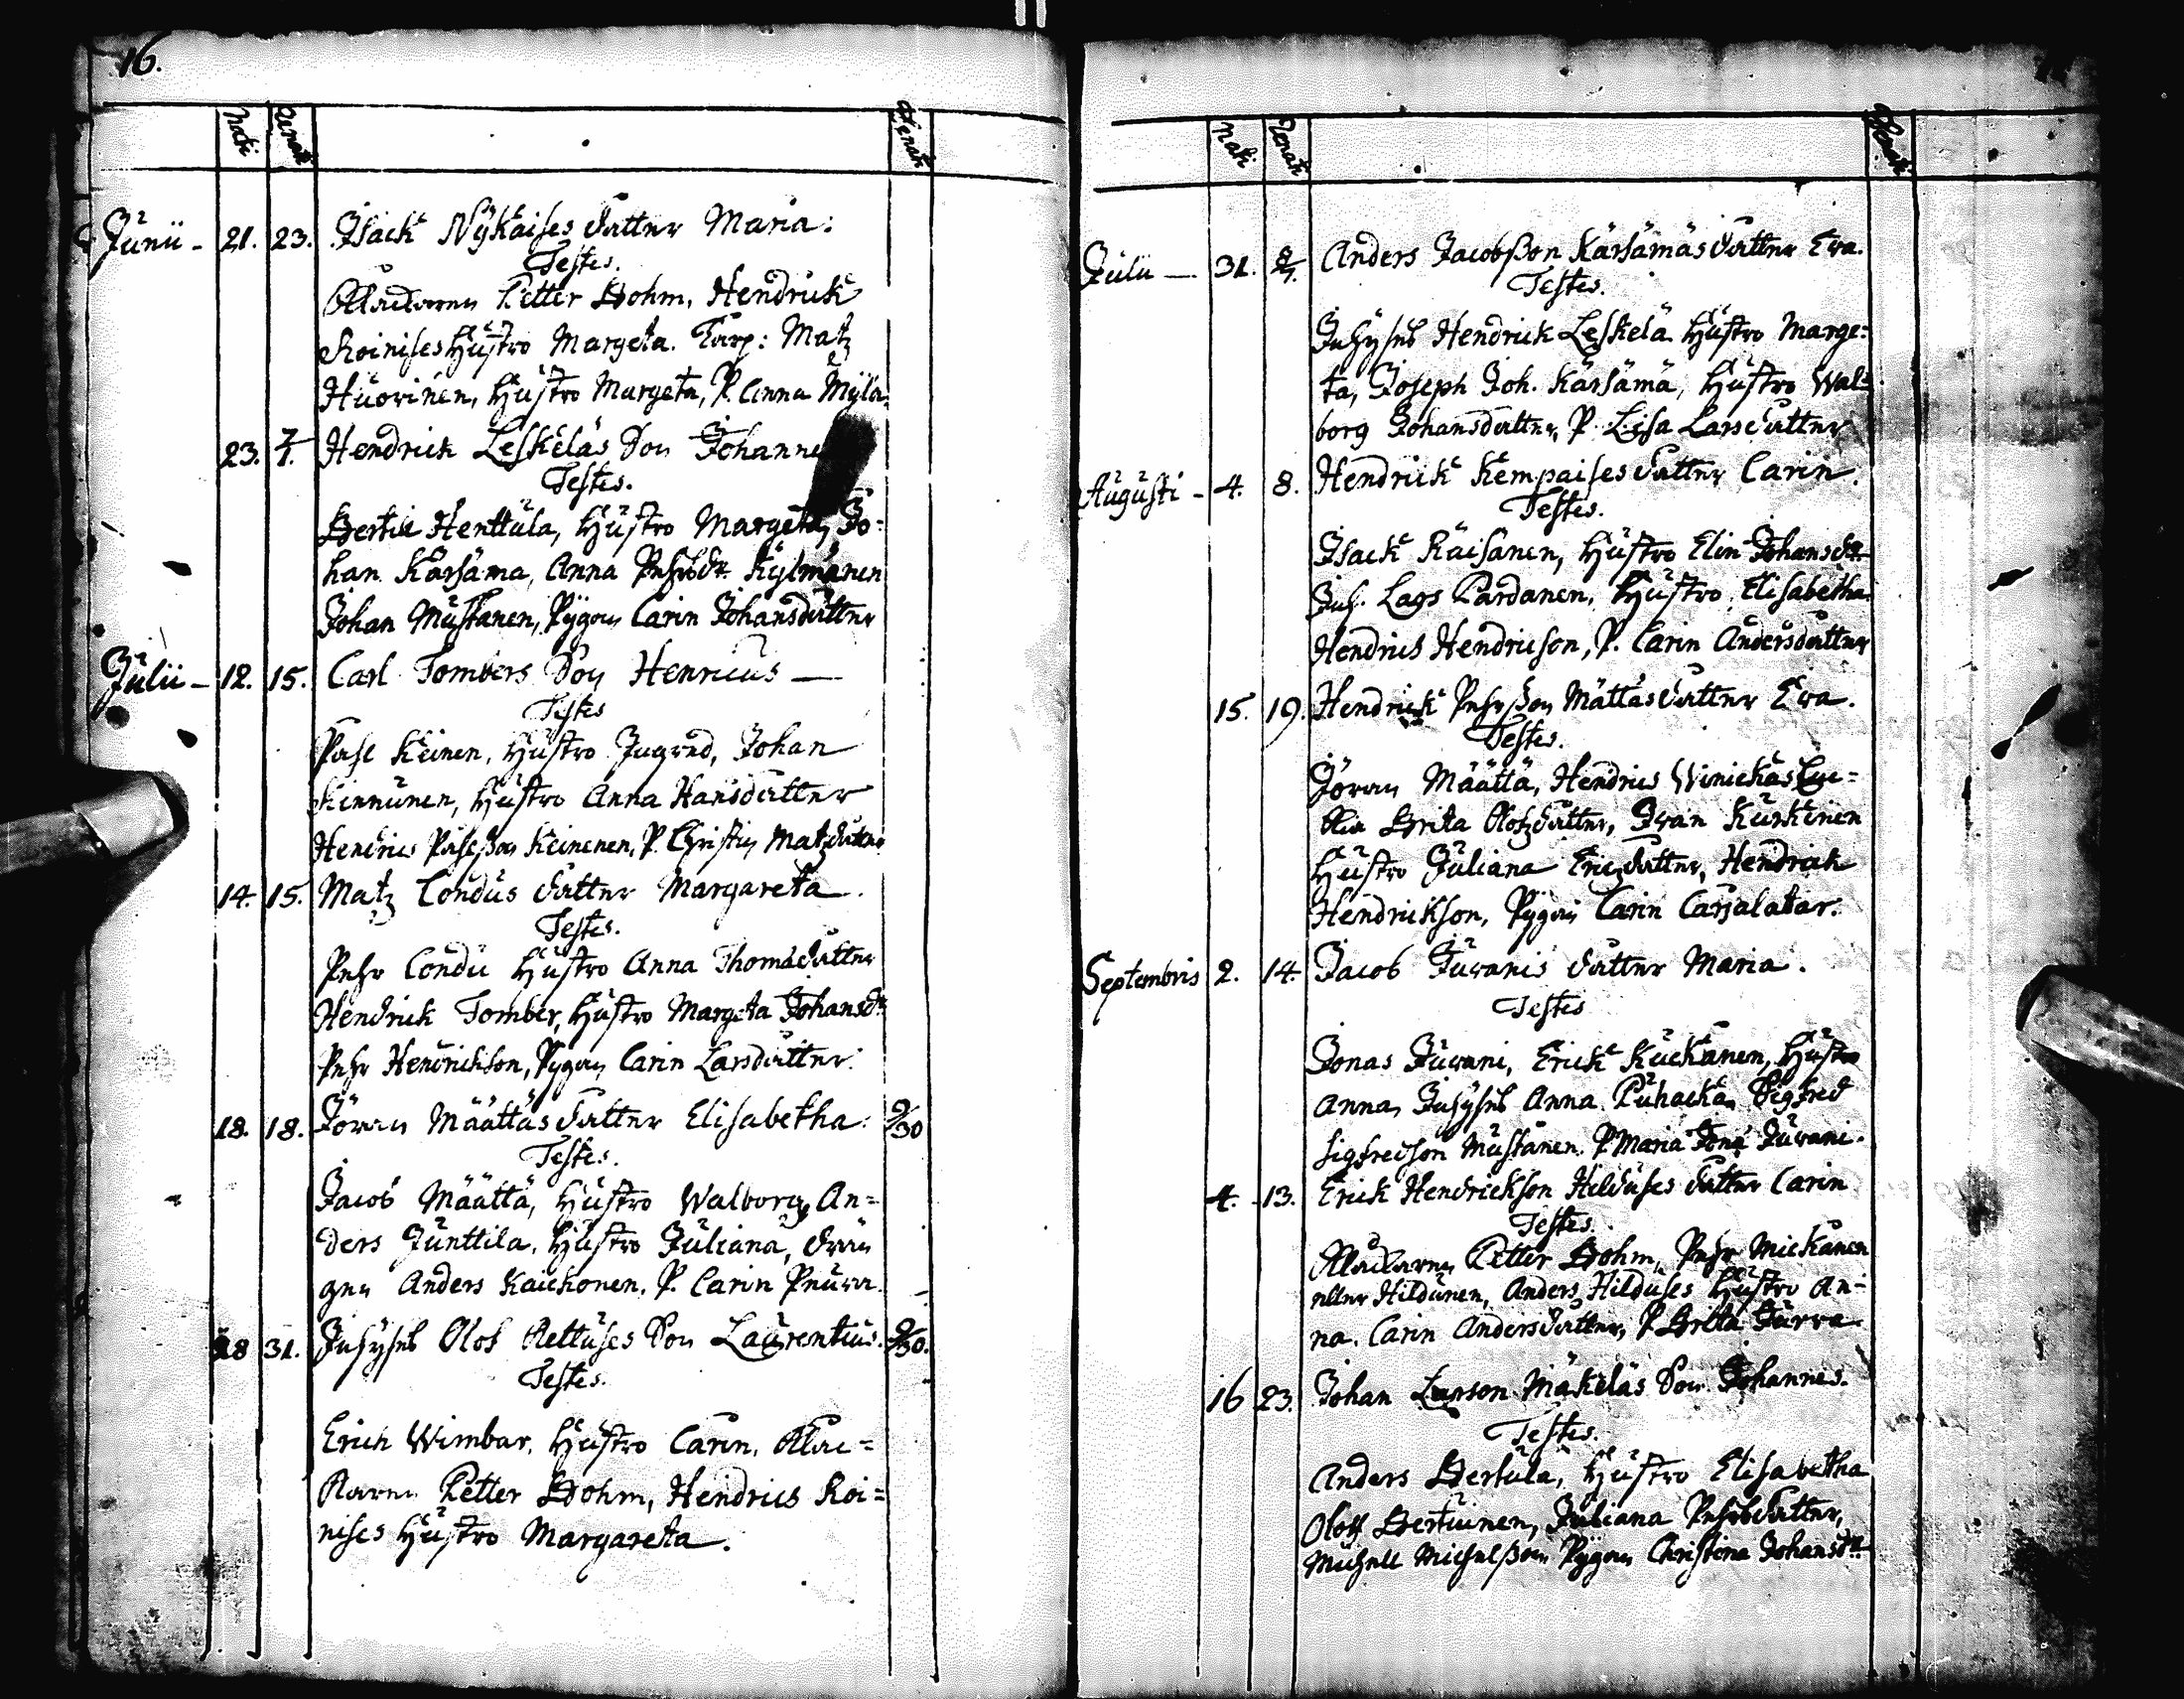 16.
Nati Renati Denati
Junii - 21. 23. Isack Nykaises dotter Maria:
Testes.
Klockaren Petter Bohm, Hendrick
Roinises Hustro Margeta. Karp: Matz
Huovinen, Hustro Margeta, P. Anna Mylä
23. 7/1. Hendrich Leskeläs Son Johanne
Testes.
Bertil Henttula, Hustro Margeta, Jo=
han Kärsämä, Anna Pehrsdr Kylmänen
Johan Mustanen, Pygan Carin Johansdotter
Julii - 12. 15. Carl Tombers Son Henricus —
Testes
Påhl Keinen, Hustro Ingred, Johan
Kinnunen, Hustro Anna Hansdotter
Hendric Påhlsson Keinenen, P. Christin Matzdotter
14. 15. Matz Condus dotter Margareta.
Testes.
Pehr Condu Hustro Anna Thomædotter
Hendrick Tomber, Hustro Margeta Johansdr
Pehr Hendrichson, Pygan Carin Larsdotter.
18. 18. Jöran Määttäs dotter Elisabetha. 9/30
Testes.
Jacob Määttä, Hustro Walborg, An=
ders Junttila, Hustro Juliana, drän
gen Anders Kaickonen, P. Carin
28 31. Inhyses Olof Aettuses Son Laurentius. 9/30.
Testes.
Erich Wimbar, Hustro Carin, Kloc=
karen Petter Bohm, Hendrics Roi=
nises Hustro Margareta.
Nati Renati Denati
Julii — 31. 8/7. Anders Jacobsson Kärsämäs dotter Eva.
Testes.
Inhyses Hendrick Leskelä Hustro Marge=
ta, Joseph Joh. Kärsämä, Hustro Wal=
borg Johansdotter, P. Lisa Larsdotter
Augusti - 4. 8. Hendrick Kempaises dotter Carin.
Testes.
Isack Räisänen, Hustro Elin Johansdr
Inh. Lars Pardanen, Hustro Elisabetha
Hendrics Hendricson, P. Carin Andersdotter
15. 19. Hendrick Pehrsson Mättäs dotter Eva.
Testes.
Jöran Määttä, Hendrics
Brita Olofzdotter, Ivan Kurkinen
Hustro Juliana Ericsdotter, Hendrich
Hendrickson, Pygan Carin Carjalatar.
Septembris 2. 14. Jacob Juvanis dotter Maria.
Testes
Jonas Juvani, Erick Kuckanen, Hustro
Anna, Inhyses Anna Puhacka, Sigfred
Sigfredson Mustanen. P. Maria Jona Juvani.
4. 13. Erick Hendrickson Hilduses dotter Carin
Testes.
Klockaren Petter Bohm, Pehr Mickanen
eller Hildunen, Anders Hilduses Hustro An=
na. Carin Andersdotter, P. Britta
16 23. Johan Larson Mäkeläs Son Johannes.
Testes.
Anders Bertula, Hustro Elisabetha
Oloff Bertuinen, Juliana Pehrsdotter,
Michell Michelsson Pygan Christina Johansdtr